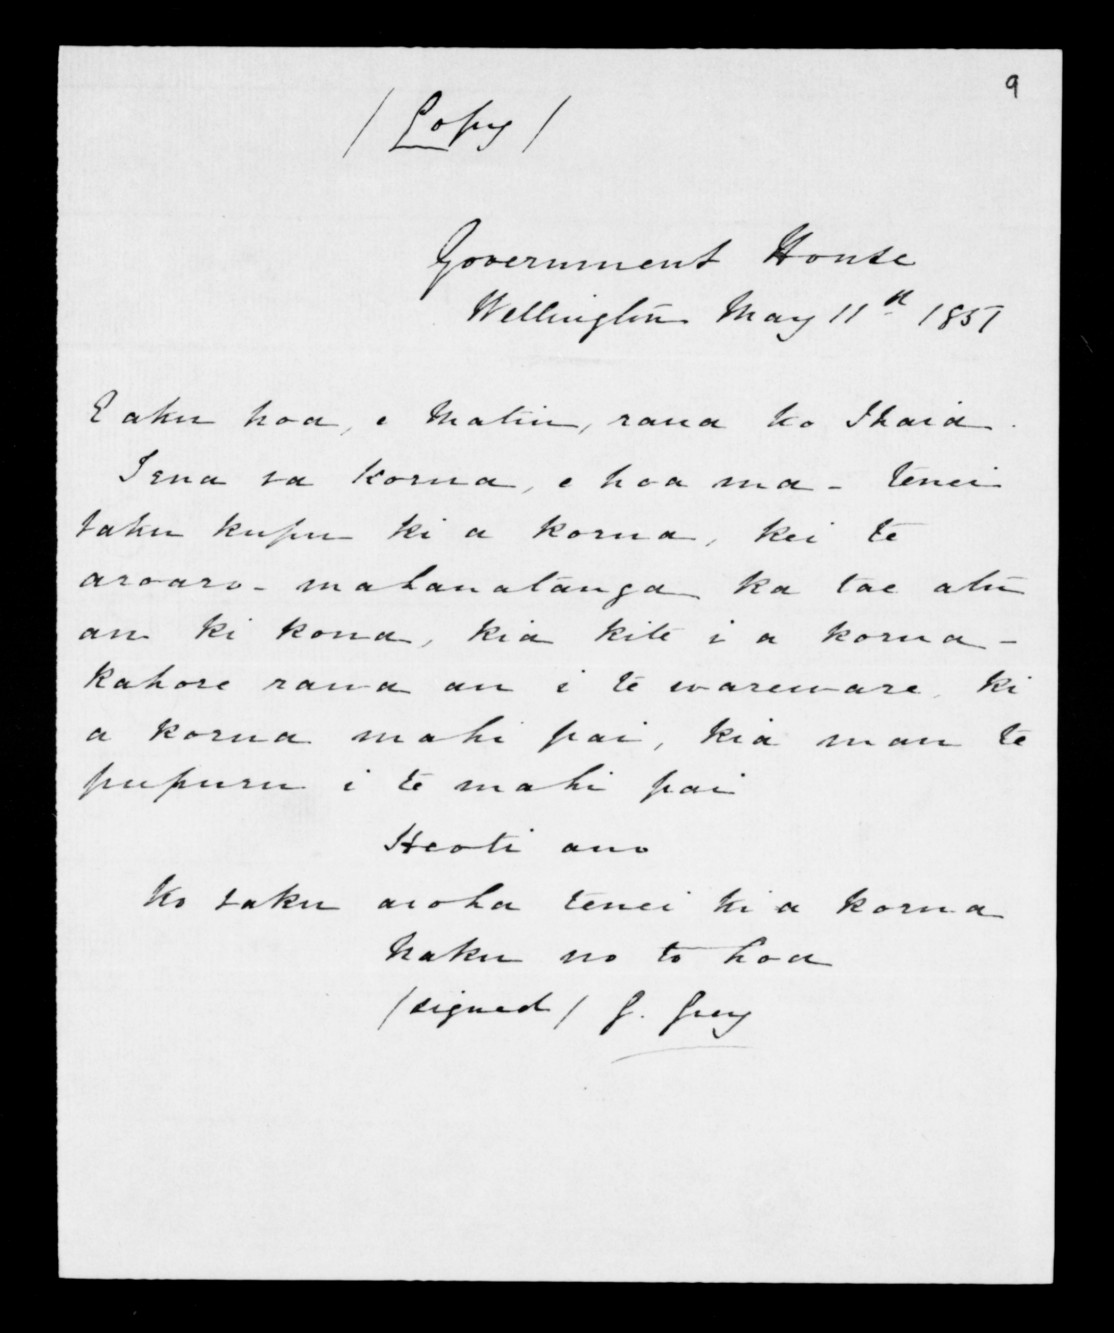 9
/ Copy /
Government House
Wellington May 11th 1851
E aku hoa, e Matiu, raua ko Ihaia.
Tena ra korua, e hoa ma - tenei
taku kupu ki a korua, kei te
aroaro-mahanatanga ka tae atu
au ki kona, kia kite i a korua -
kahore rawa au i te wareware, ki
a korua mahi pai, kia mau te
pupuru i te mahi pai
Heoti ano
Ko taku aroha tenei ki a korua
Naku no to hoa
/ signed / G. Grey